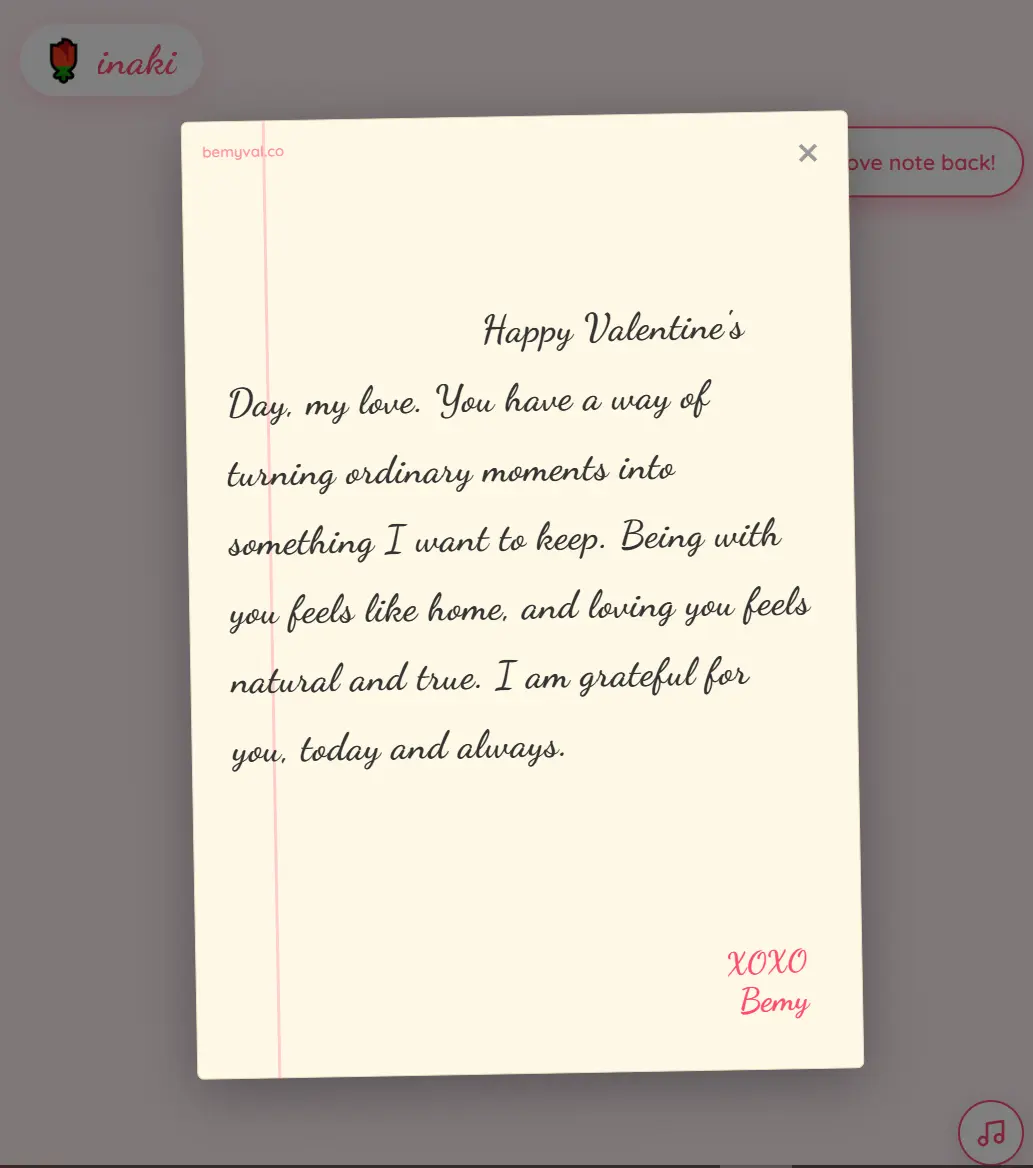 inaki
bemyval.co
ove note back!
Happy Valentine's
Day, my love. You have a way of
turning ordinary moments into
something I want to keep. Being with
you feels like home, and loving you feels
natural and true. I am grateful for
you, today and always.
XOXO
Bemy